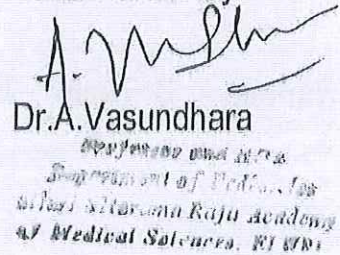 Dr.A.Vasundhara
Professor and HOD
Department of Pediatrics
Alluri Sitarama Raju Academy
of Medical Sciences,